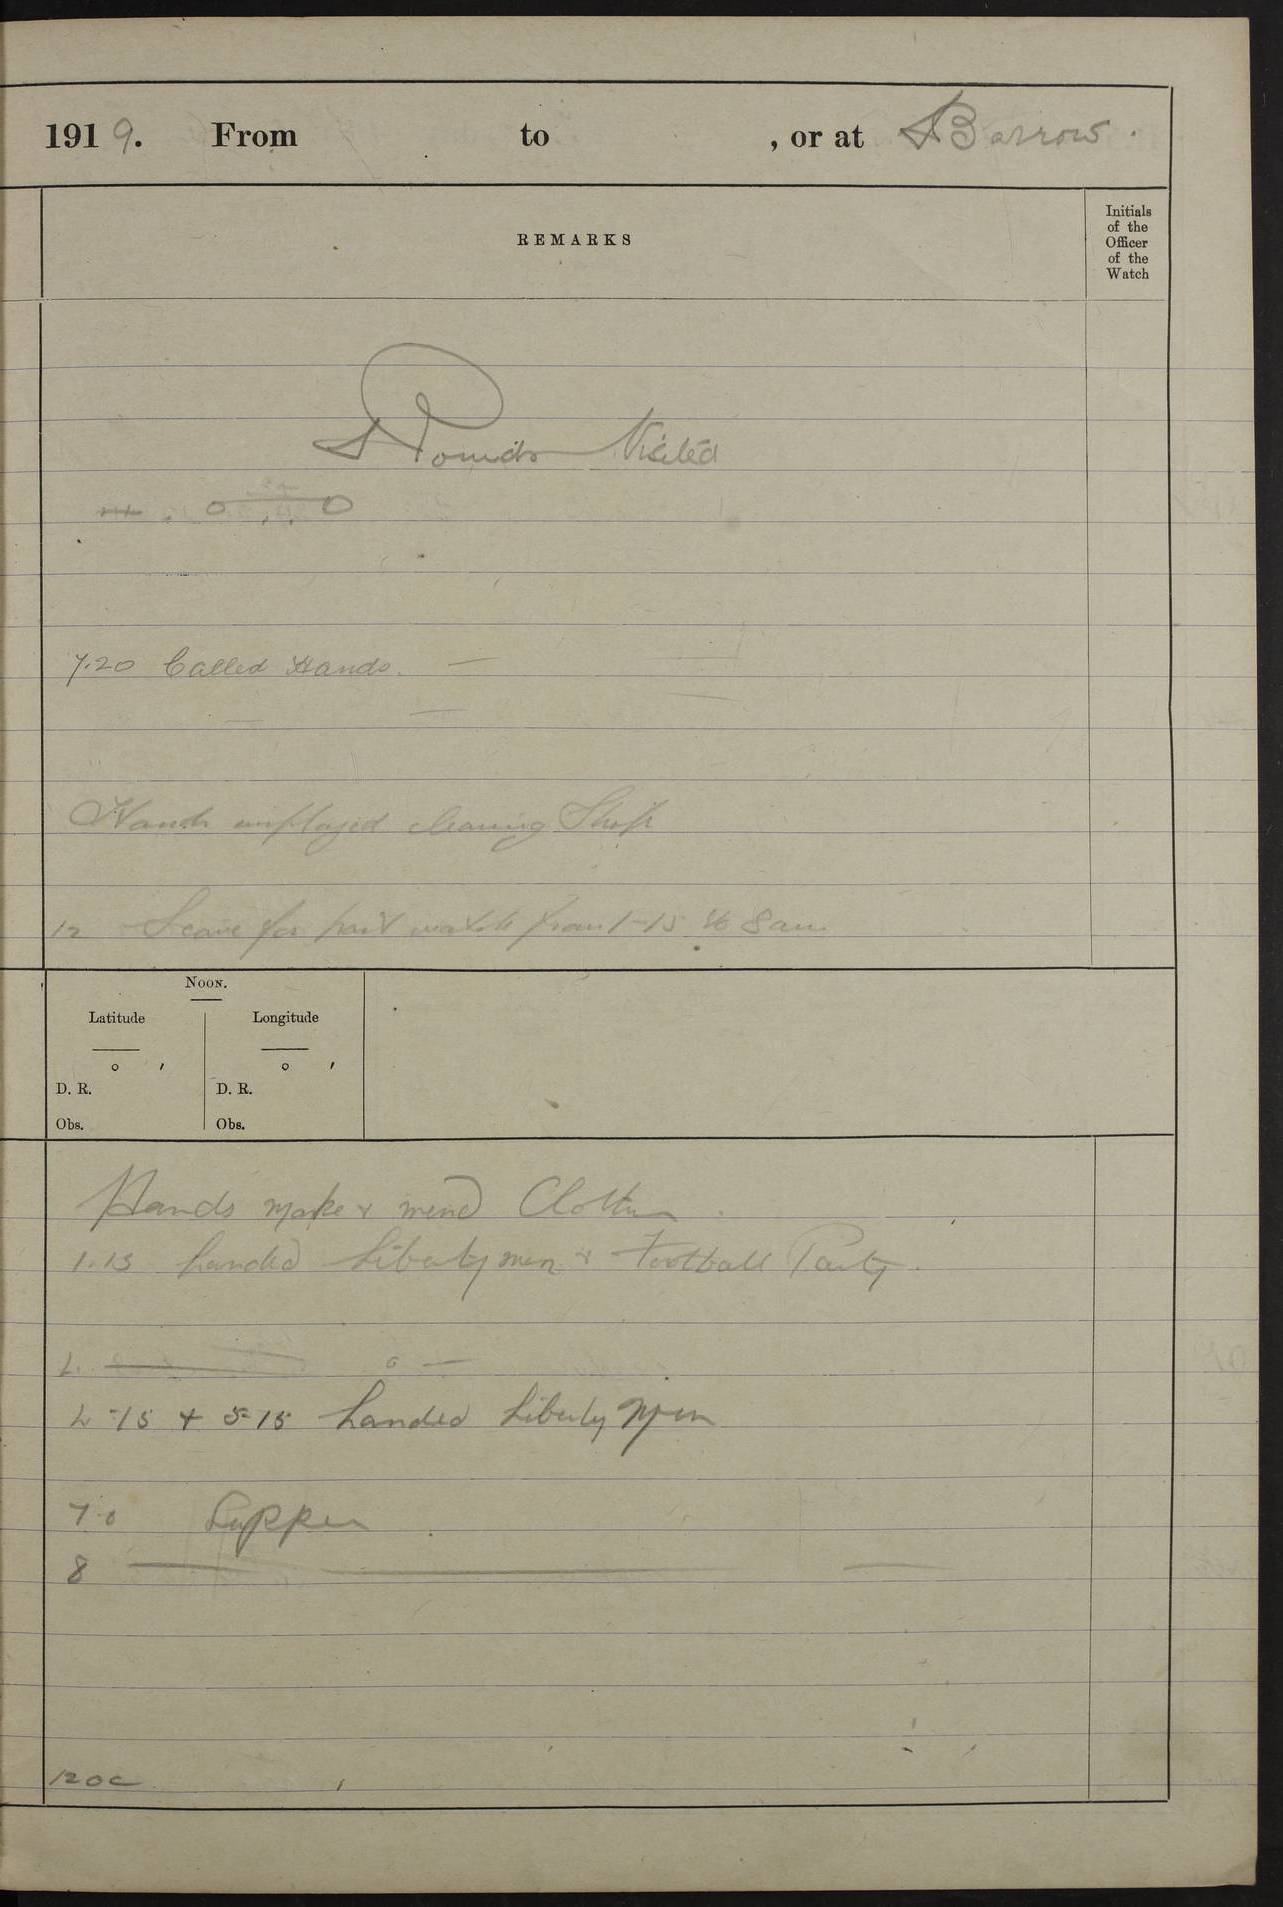 1919. From to , or at Barrow.
REMARKS
Initials
of the
Officer
of the
Watch
Rounds Visited
7.20 Called Hands.
Hands employed cleaning Ship
12 Leave for part watch from 1-15 to 8 am.
NOON.
Latitude Longitude
° ′ ° ′
D. R. D. R.
Obs. Obs.
Hands make & mend Clothes.
1.15 Landed Liberty men & Football Party.
4.
4-15 & 5-15 Landed Liberty Men
7.0 Supper
8